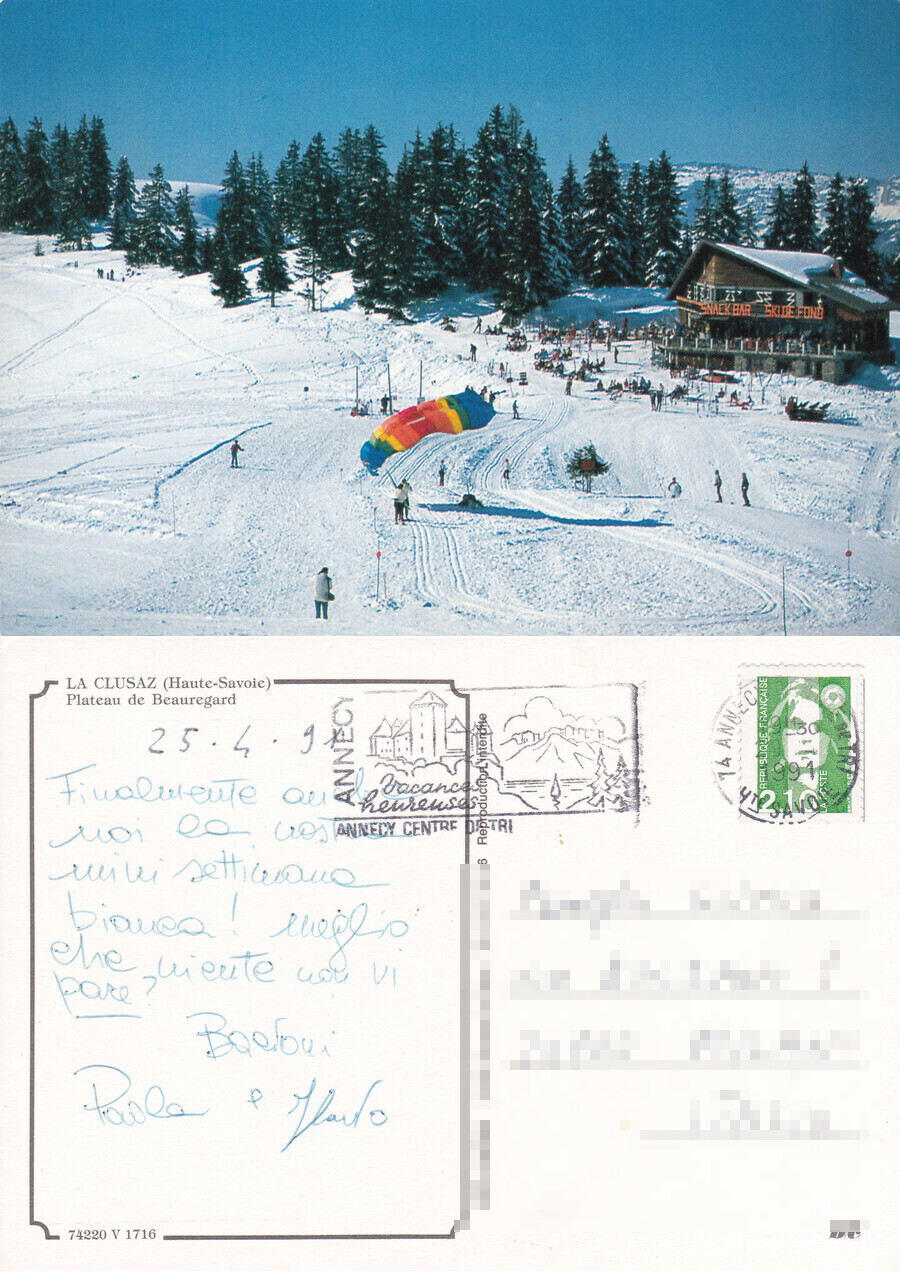 SNACK BAR SKI DE FOND
LA CLUSAZ (Haute-Savoie)
Plateau de Beauregard
25.4.91
Finalmente anche
noi la nostra
mini settimana
bianca! Meglio
che niente non vi
pare?
Bacioni
Paola e
74220 V 1716
Reproduction interdite
ANNECY
Vacances
heureuses
ANNECY CENTRE DE TRI
14 ANNECY
1991
HTE SAVOIE
RÉPUBLIQUE FRANÇAISE
2,10
LA POSTE